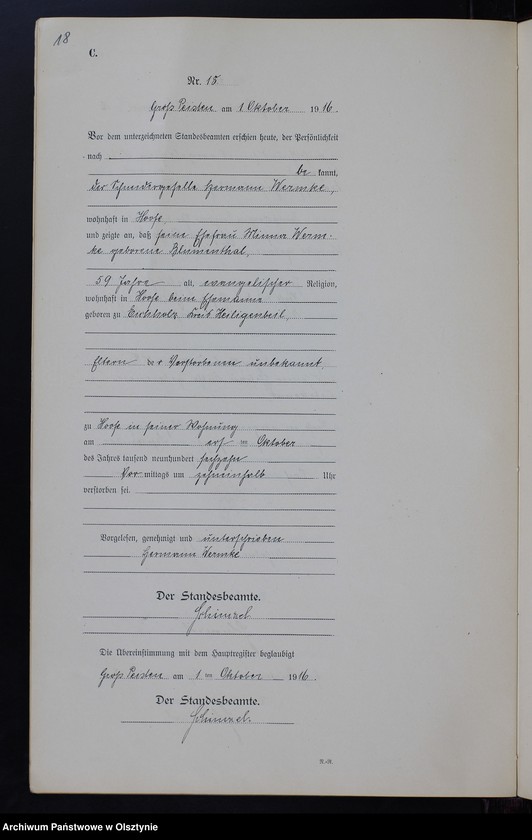 18
C.
Nr. 15.
Groß Peisten am 1 Oktober 1916.
Vor dem unterzeichneten Standesbeamten erschien heute, der Persönlichkeit
nach
be kannt,
der Schneidergeselle Hermann Wermke,
wohnhaft in Hoofe,
und zeigte an, daß seine Ehefrau Minna Werm-
ke geborene Blumenthal,
59 Jahre alt, evangelischer Religion,
wohnhaft in Hoofe beim Ehemanne
geboren zu Eichholz Kreis Heiligenbeil,
Eltern der Verstorbenen unbekannt,
zu Hoofe in seiner Wohnung
am ersten Oktober
des Jahres tausend neunhundert sechzehn
Vor mittags um zehneinhalb Uhr
verstorben sei.
Vorgelesen, genehmigt und unterschrieben
Hermann Wermke
Der Standesbeamte.
Schinzel
Die Übereinstimmung mit dem Hauptregister beglaubigt
Groß Peisten am 1 ten Oktober 1916.
Der Standesbeamte.
Schinzel.
Archiwum Państwowe w Olsztynie